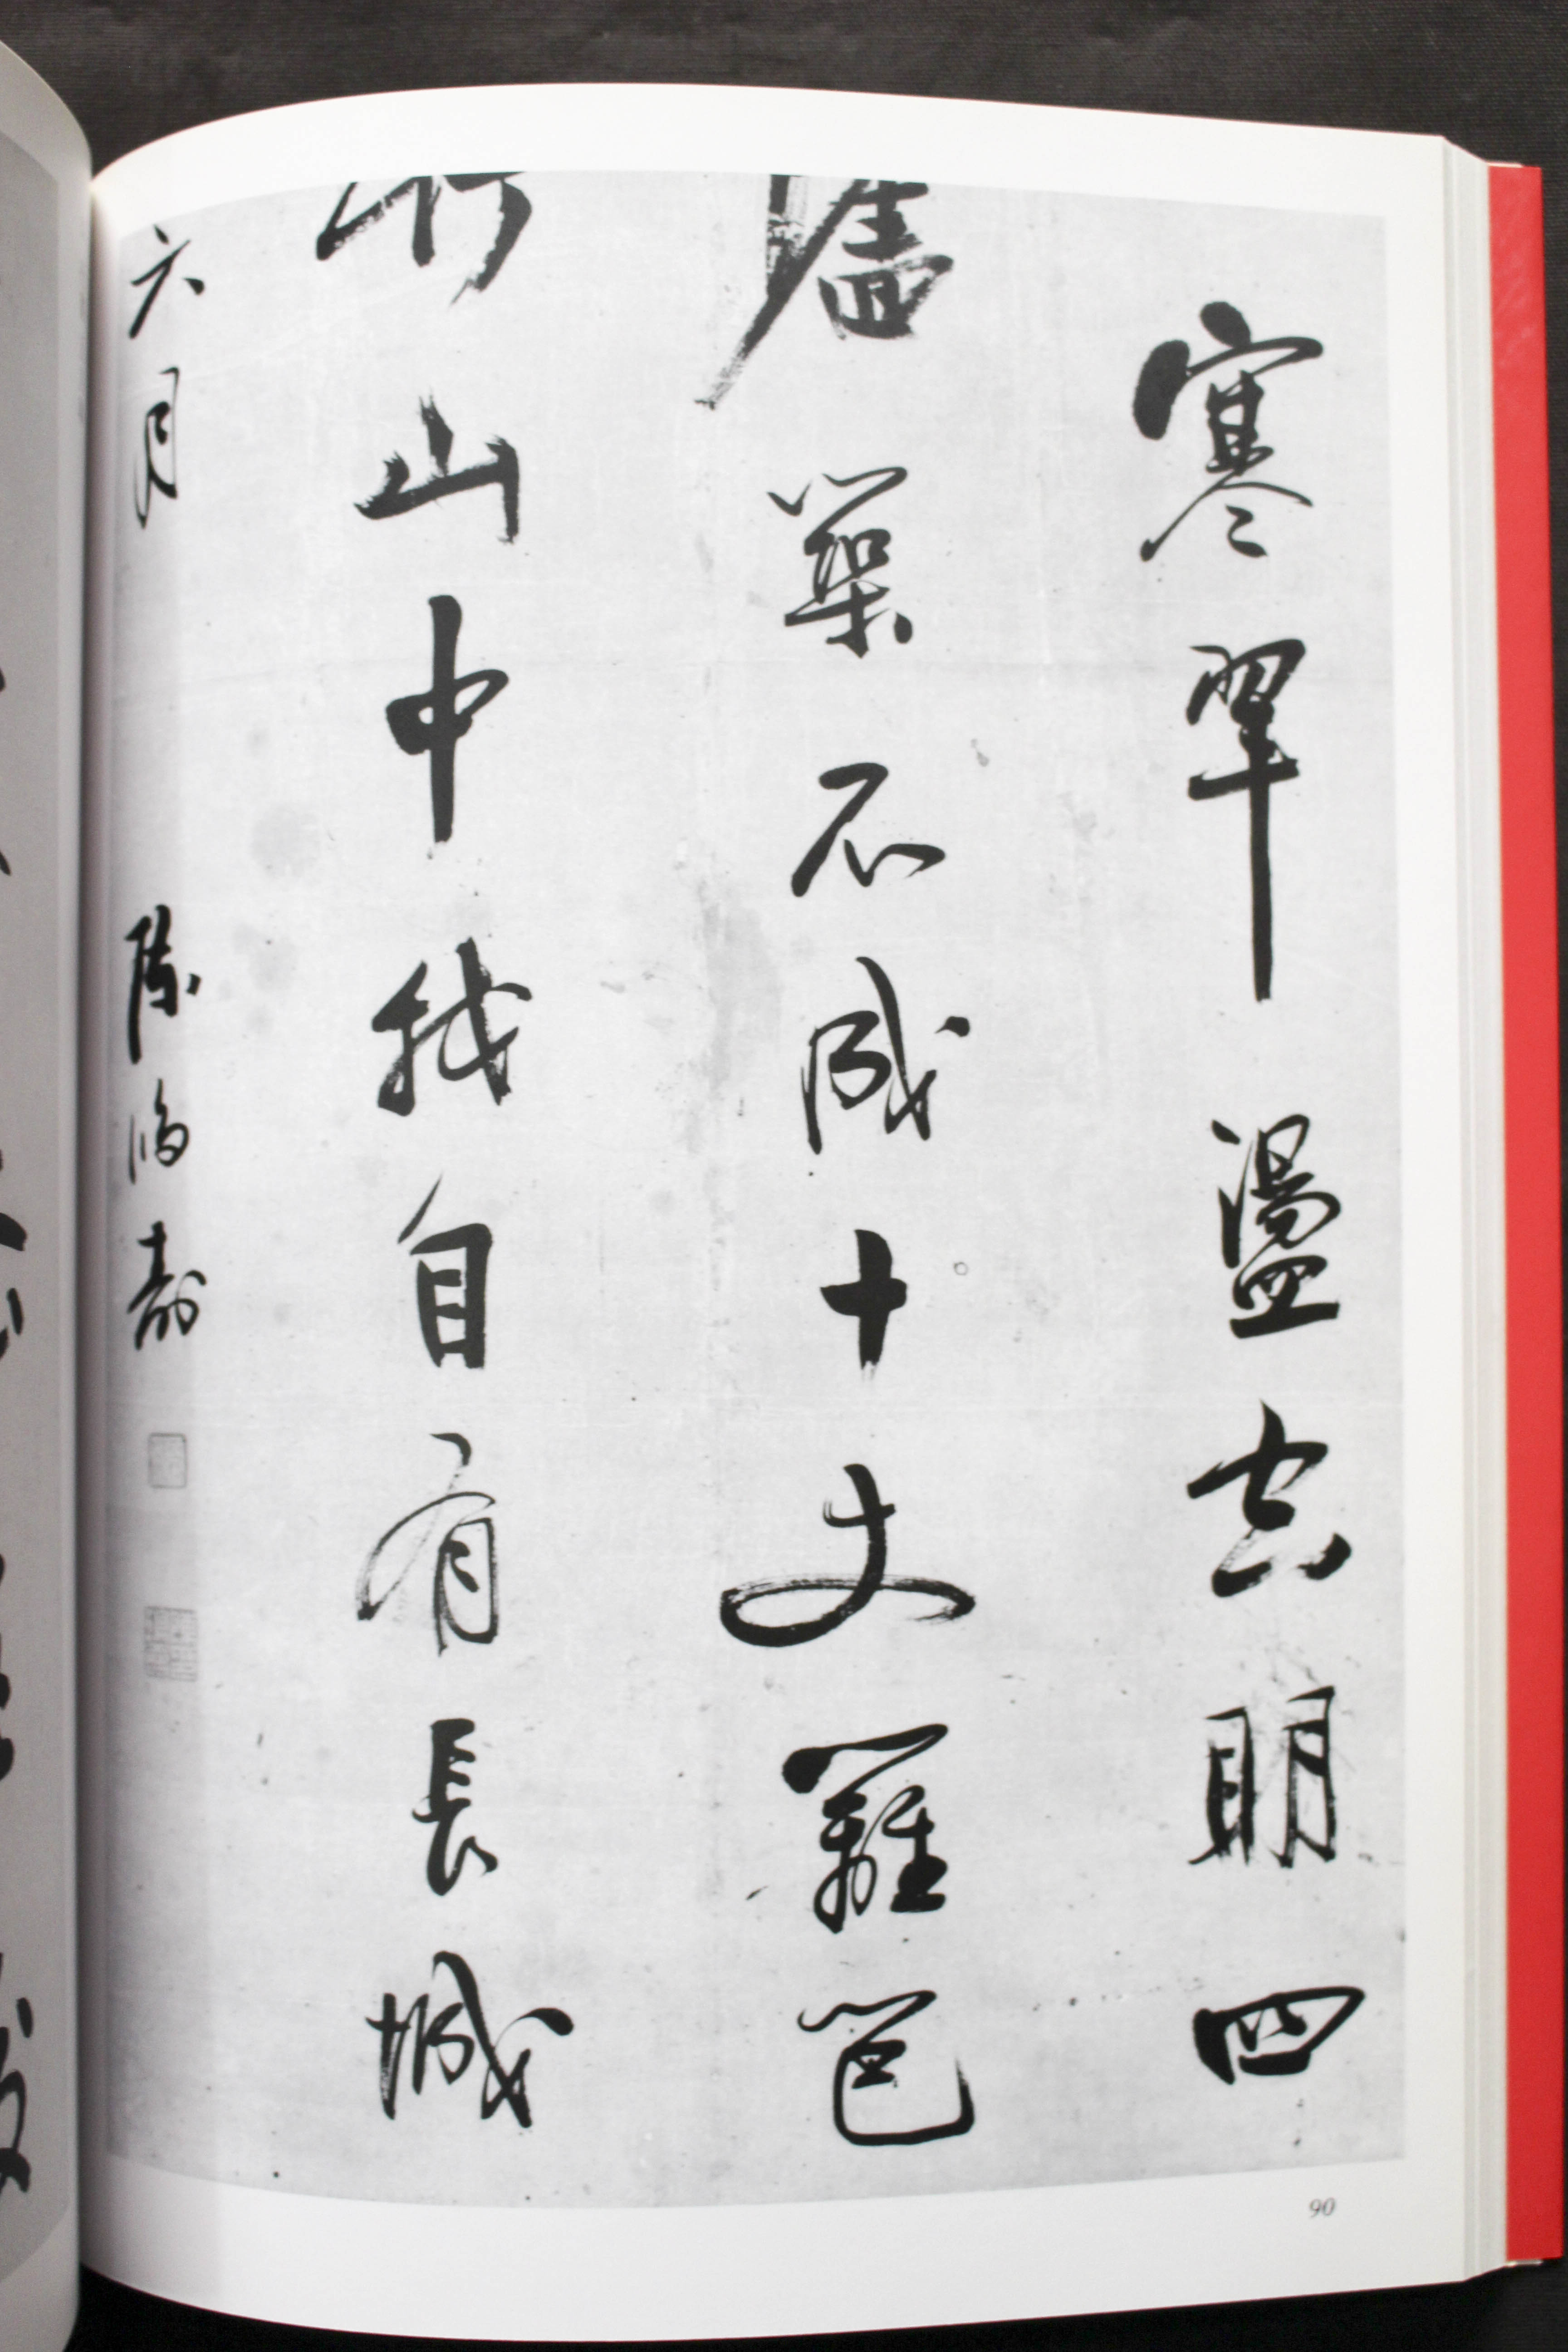 寒翠盪空明四
廬築不成十丈籬笆
山中我自有長城
六月 陳鴻壽
90